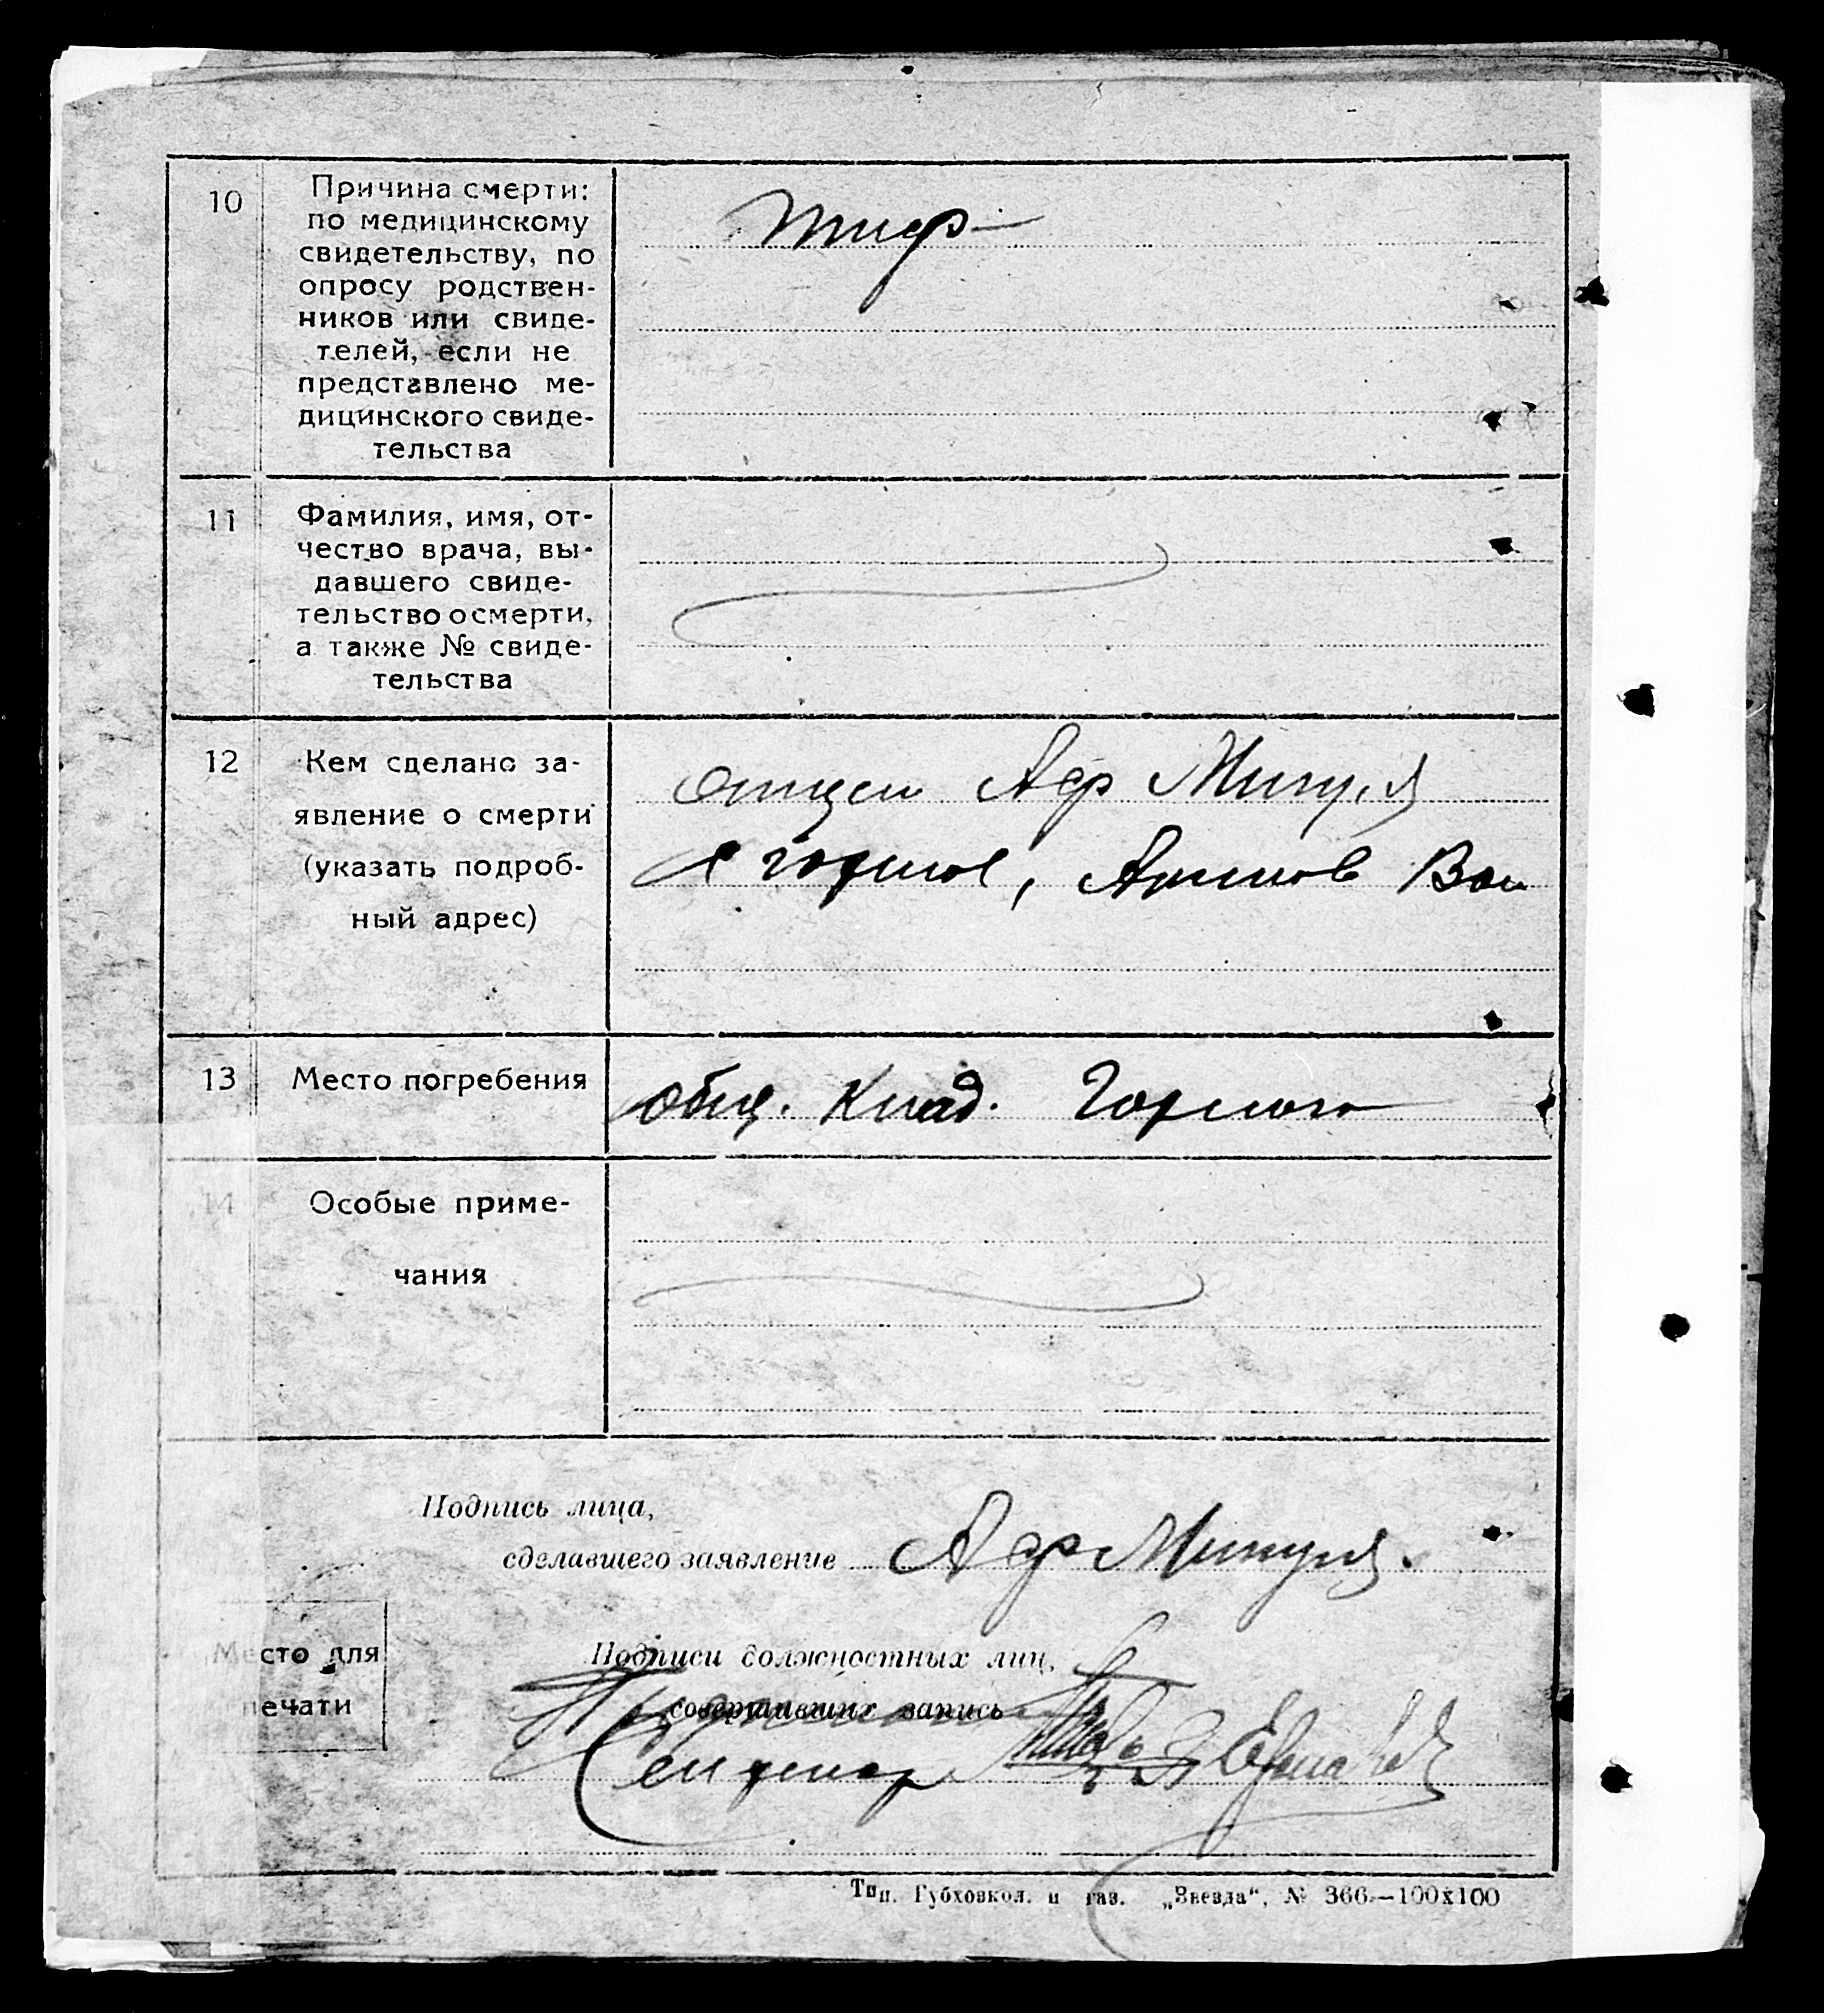 10
Причина смерти:
по медицинскому
свидетельству, по
опросу родствен-
ников или свиде-
телей, если не
представлено ме-
дицинского свиде-
тельства
тиф
11
Фамилия, имя, от-
чество врача, вы-
давшего свиде-
тельство о смерти,
а также № свиде-
тельства
12
Кем сделано за-
явление о смерти
(указать подроб-
ный адрес)
отцем Аф
13
Место погребения
общ. клад. Горлого
14
Особые приме-
чания
Подпись лица,
сделавшего заявление Аф
Место для
печати
Подписи должностных лиц,
совершивших запись
Тип. Губховкол. и газ. „Звезда“, № 366.—100х100